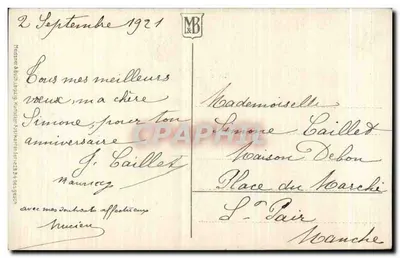 2 Septembre 1921
MB
Tous mes meilleurs
vœux, ma chère
Simone, pour ton
anniversaire
J. Caillet
avec mes souhaits affectueux
Lucien
Mademoiselle
Simone Caillet
Maison Debon
Place du Marché
St Pair
Manche
CPAPHIL